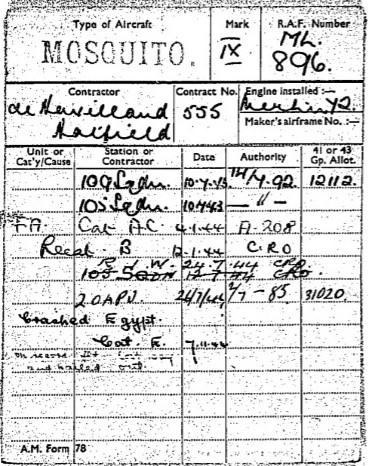 Type of Aircraft Mark R.A.F. Number
MOSQUITO. IX ML. 896.
Contractor Contract No. Engine installed :—
de Havilland 555 Merlin 72.
Hatfield Maker's airframe No. :—
Unit or Cat'y/Cause Station or Contractor Date Authority 41 or 43 Gp. Allot.
109 Sqdn. 12112
105 Sqdn. — " —
F.A. Cat AC. 4.1.44 A.208
Recat. B 12.1.44 C.R.O
R.I.W. 24.7.44 CRO
105 SQDN CRO
2 OAPU. 31020
Crashed Egypt.
Cat. E. 7.11.44
and bailed out.
A.M. Form 78